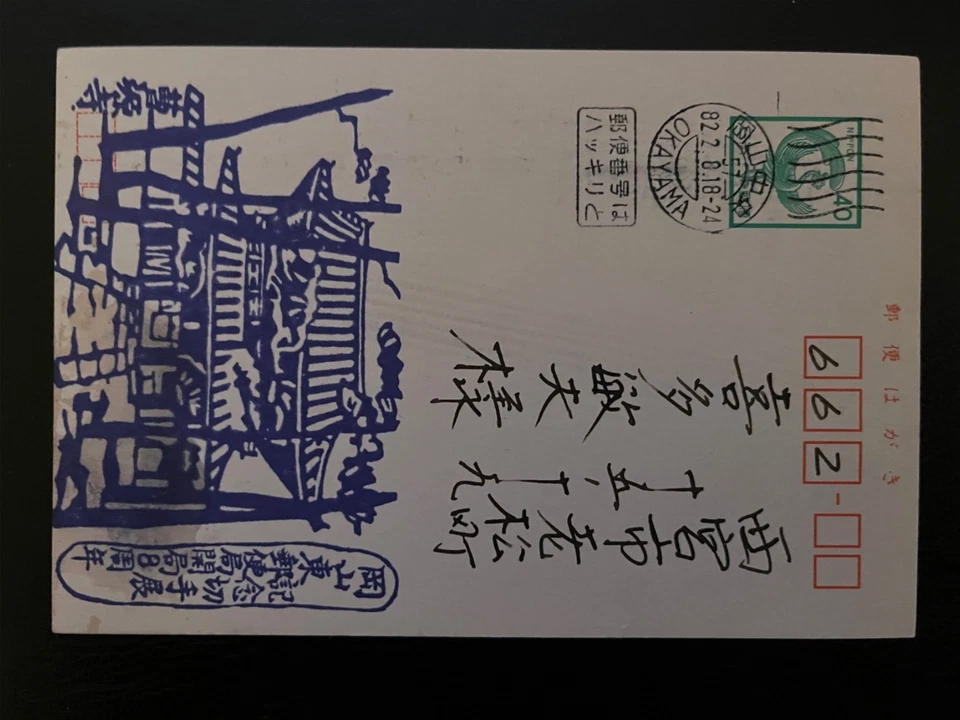 郵便はがき
662
NIPPON
40
岡山中央
82.2.8.18-24
OKAYAMA
郵便番号は
ハッキリと
西宮市老松町
十五ノ十九
喜多敏夫様
曹源寺
岡山東郵便局開局8周年
記念切手展